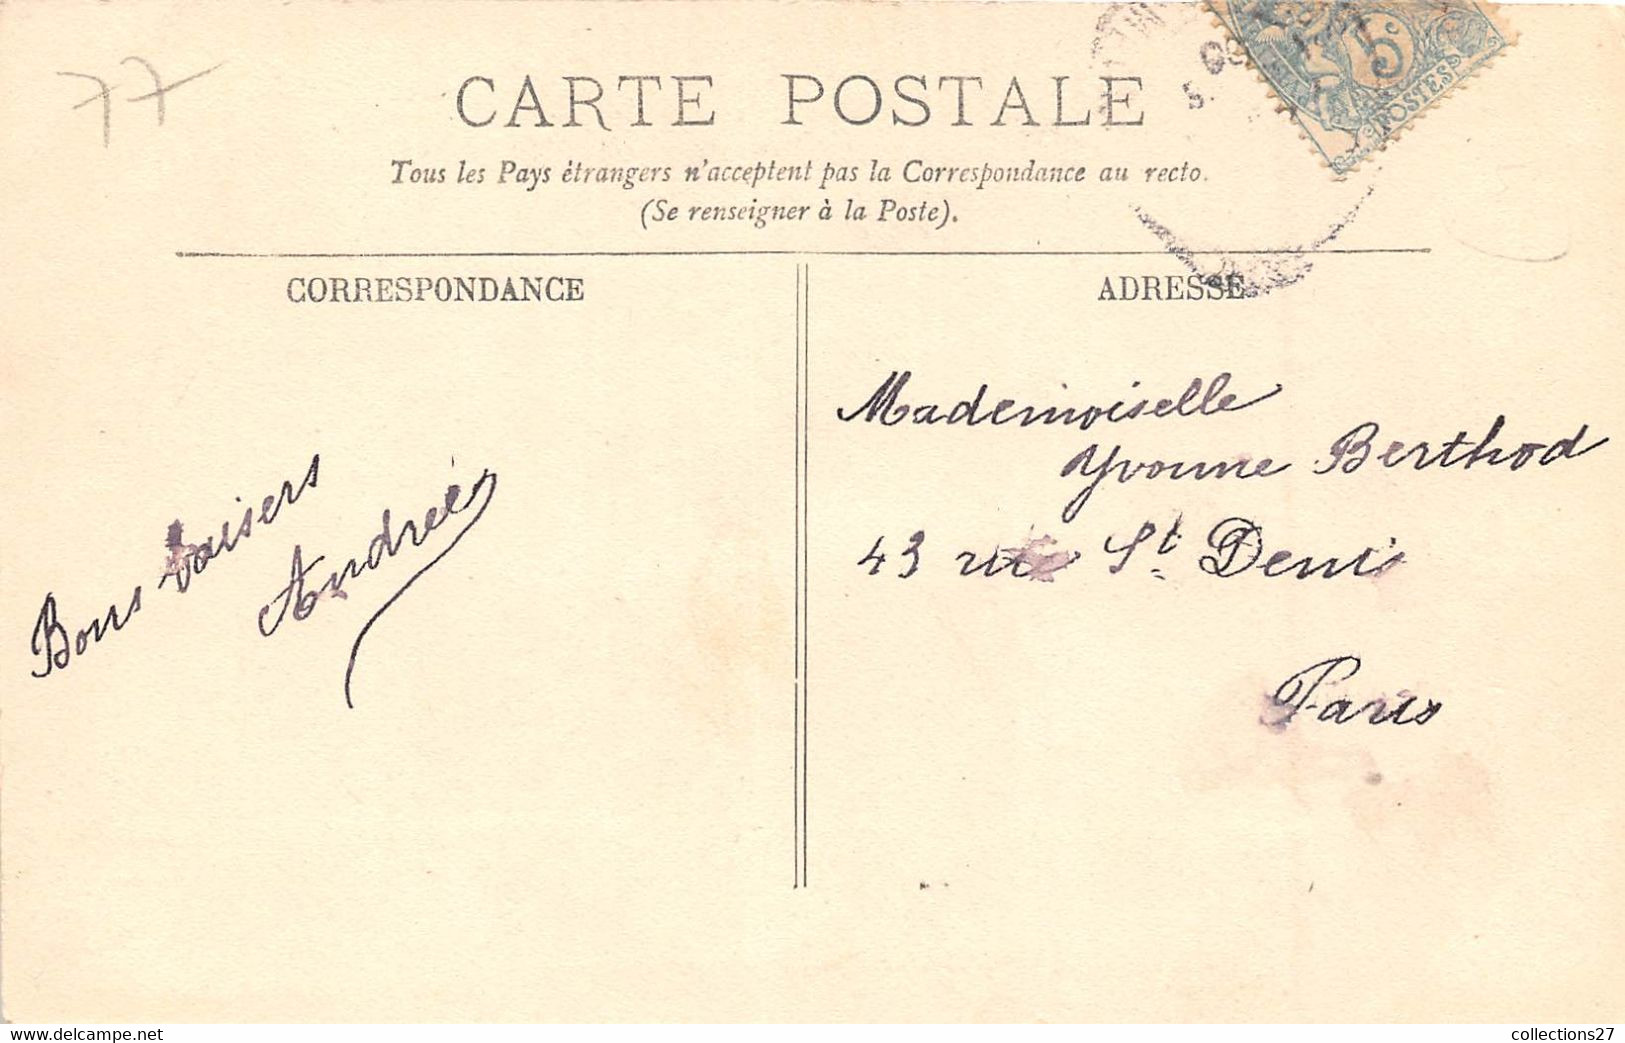 77
CARTE POSTALE
Tous les Pays étrangers n'acceptent pas la Correspondance au recto.
(Se renseigner à la Poste).
5c
POSTES
CORRESPONDANCE
ADRESSE
Bons baisers
Andrée
Mademoiselle
Yvonne Berthod
43 rue St Denis
Paris
www.delcampe.net
collections27